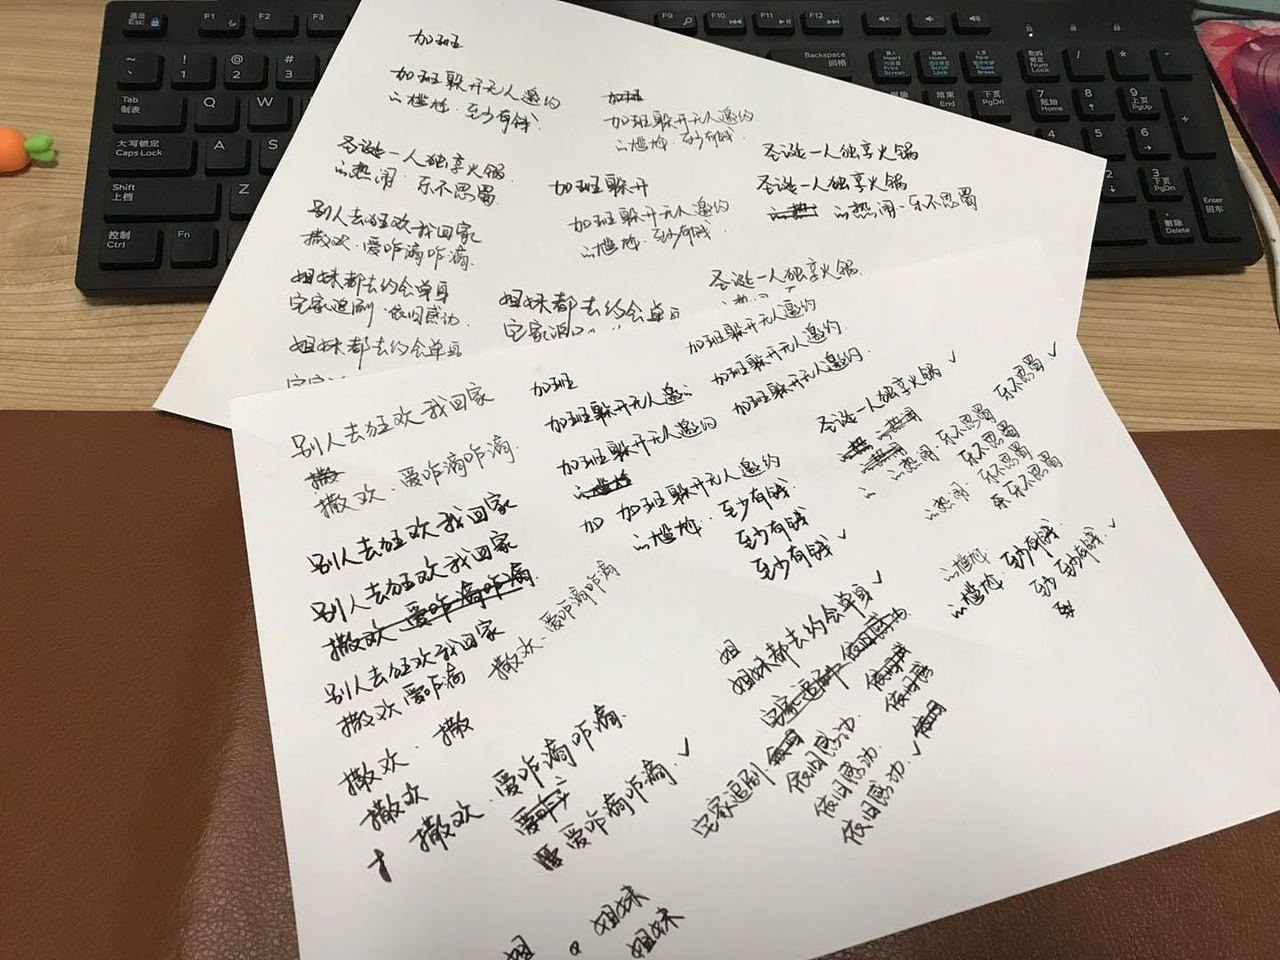 加班
加班躲开无人邀约
的尴尬．至少有钱．
圣诞一人独享火锅．
的热闹．乐不思蜀
别人去狂欢我回家
撒欢．爱咋滴咋滴．
姐妹都去约会单身
宅家追剧．依旧感动．
姐妹都去约会单身
加班
加班躲开无人邀约．
的尴尬．至少有钱．
加班躲开
加班躲开无人邀约
的尴尬．至少有钱．
姐妹都去约会单身
圣诞一人独享火锅
圣诞一人独享火锅
的热闹．乐不思蜀
圣诞一人独享火锅．
别人去狂欢我回家
撒
撒欢．爱咋滴咋滴．
别人去狂欢我回家
别人去狂欢我回家
撒欢．爱咋滴咋滴
别人去狂欢我回家
撒欢．爱咋滴
撒欢．爱咋滴咋滴
撒欢．撒
撒欢
撒欢．爱咋滴咋滴．
爱咋
爱咋滴咋滴．✓
加班
加班躲开无人邀
加班躲开无人邀约
的尴尬
加 加班躲开无人邀约
的尴尬．至少有钱．
至少有钱．
至少有钱．✓
加班躲开无人邀约
加班躲开无人邀约．
加班躲开无人邀约．
圣诞一人独享火锅 ✓
的热闹
的热闹．乐不思蜀
的热闹．乐不思蜀
乐不思蜀．✓
乐不思蜀
乐不思蜀
的尴尬．
的尴尬．至少有钱．
至少有钱．✓
姐
姐妹都去约会单身 ✓
宅家追剧．依旧感动
宅家追剧．依旧
依旧感动．
依旧感动．
依旧感动．✓
依旧
姐妹
姐妹
姐
退出
Esc
F1
F2
F3
F9
F10
F11
F12
~
`
!
1
@
2
#
3
Backspace
回格
Tab
制表
Q
W
大写锁定
Caps Lock
A
S
Shift
上档
Z
控制
Ctrl
Fn
插入
Insert
Print
Screen
Scroll
Lock
Pause
Break
结束
End
下页
PgDn
数码
锁定
Num
Lock
/
*
-
7
起始
Home
8
9
上页
PgUp
+
4
5
6
3
下页
PgDn
.
删除
Delete
Enter
回车